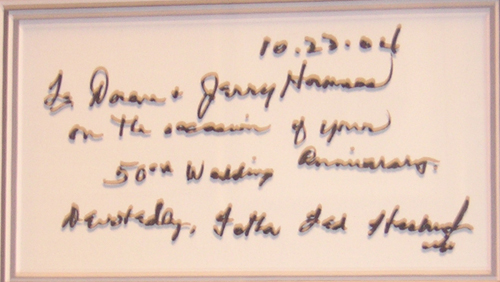 To Dorene + Jerry Hammes
on the occasion of your
50th Wedding Anniversary.
Devotedly, Father Ted Hesburgh
csc